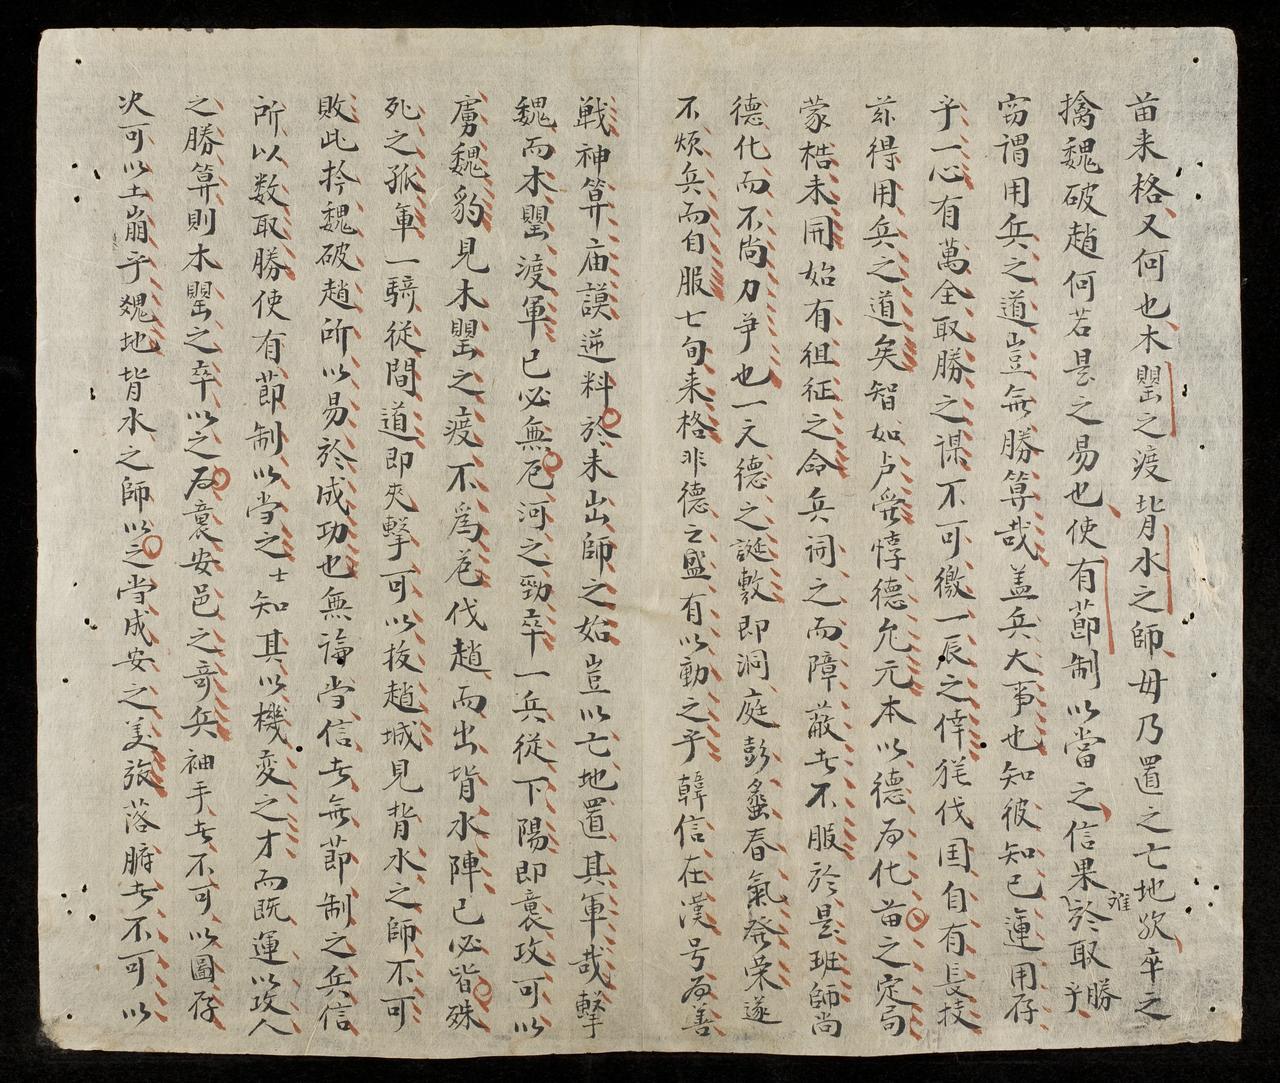 苗来格又何也木罌之渡背水之師毋乃置之亡地欤卒之
擒魏破趙何若是之易也使有莭制以當之信果难於取勝乎
窃谓用兵之道豈無勝算哉盖兵大事也知彼知己運用存
乎一心有萬全取勝之謀不可徼一辰之倖羗伐囯自有長技
茲得用兵之道矣智如卢
惇德允元本以德为化苗之定局
蒙梏未開始有徂征之命兵词之而障蔽者不服於是班師尚
德化而不尚刀爭也一天德之誕敷即洞庭彭蠡春氣發荣遂
不烦兵而自服七旬来格非德之盛有以動之乎韓信在漢号为善
戦神算庙謨逆料於未出師之始豈以亡地置其軍哉擊
魏而木罌渡軍已必無
河之勁卒一兵從下陽即襄攻可以
虜魏豹見木罌之渡不爲
伐趙而出背水陣已必皆殊
死之孤軍一騎從間道即夾擊可以拔趙城見背水之師不可
敗此擒魏破趙所以易於成功也無論当信者無莭制之兵信
所以数取勝使有莭制以当之士知其以機变之才而既運以攻人
之勝算則木罌之卒以之为襄安邑之竒兵袖手者不可以圖存
次可以土崩乎魏地背水之師以之当成安之
旗落
者不可以